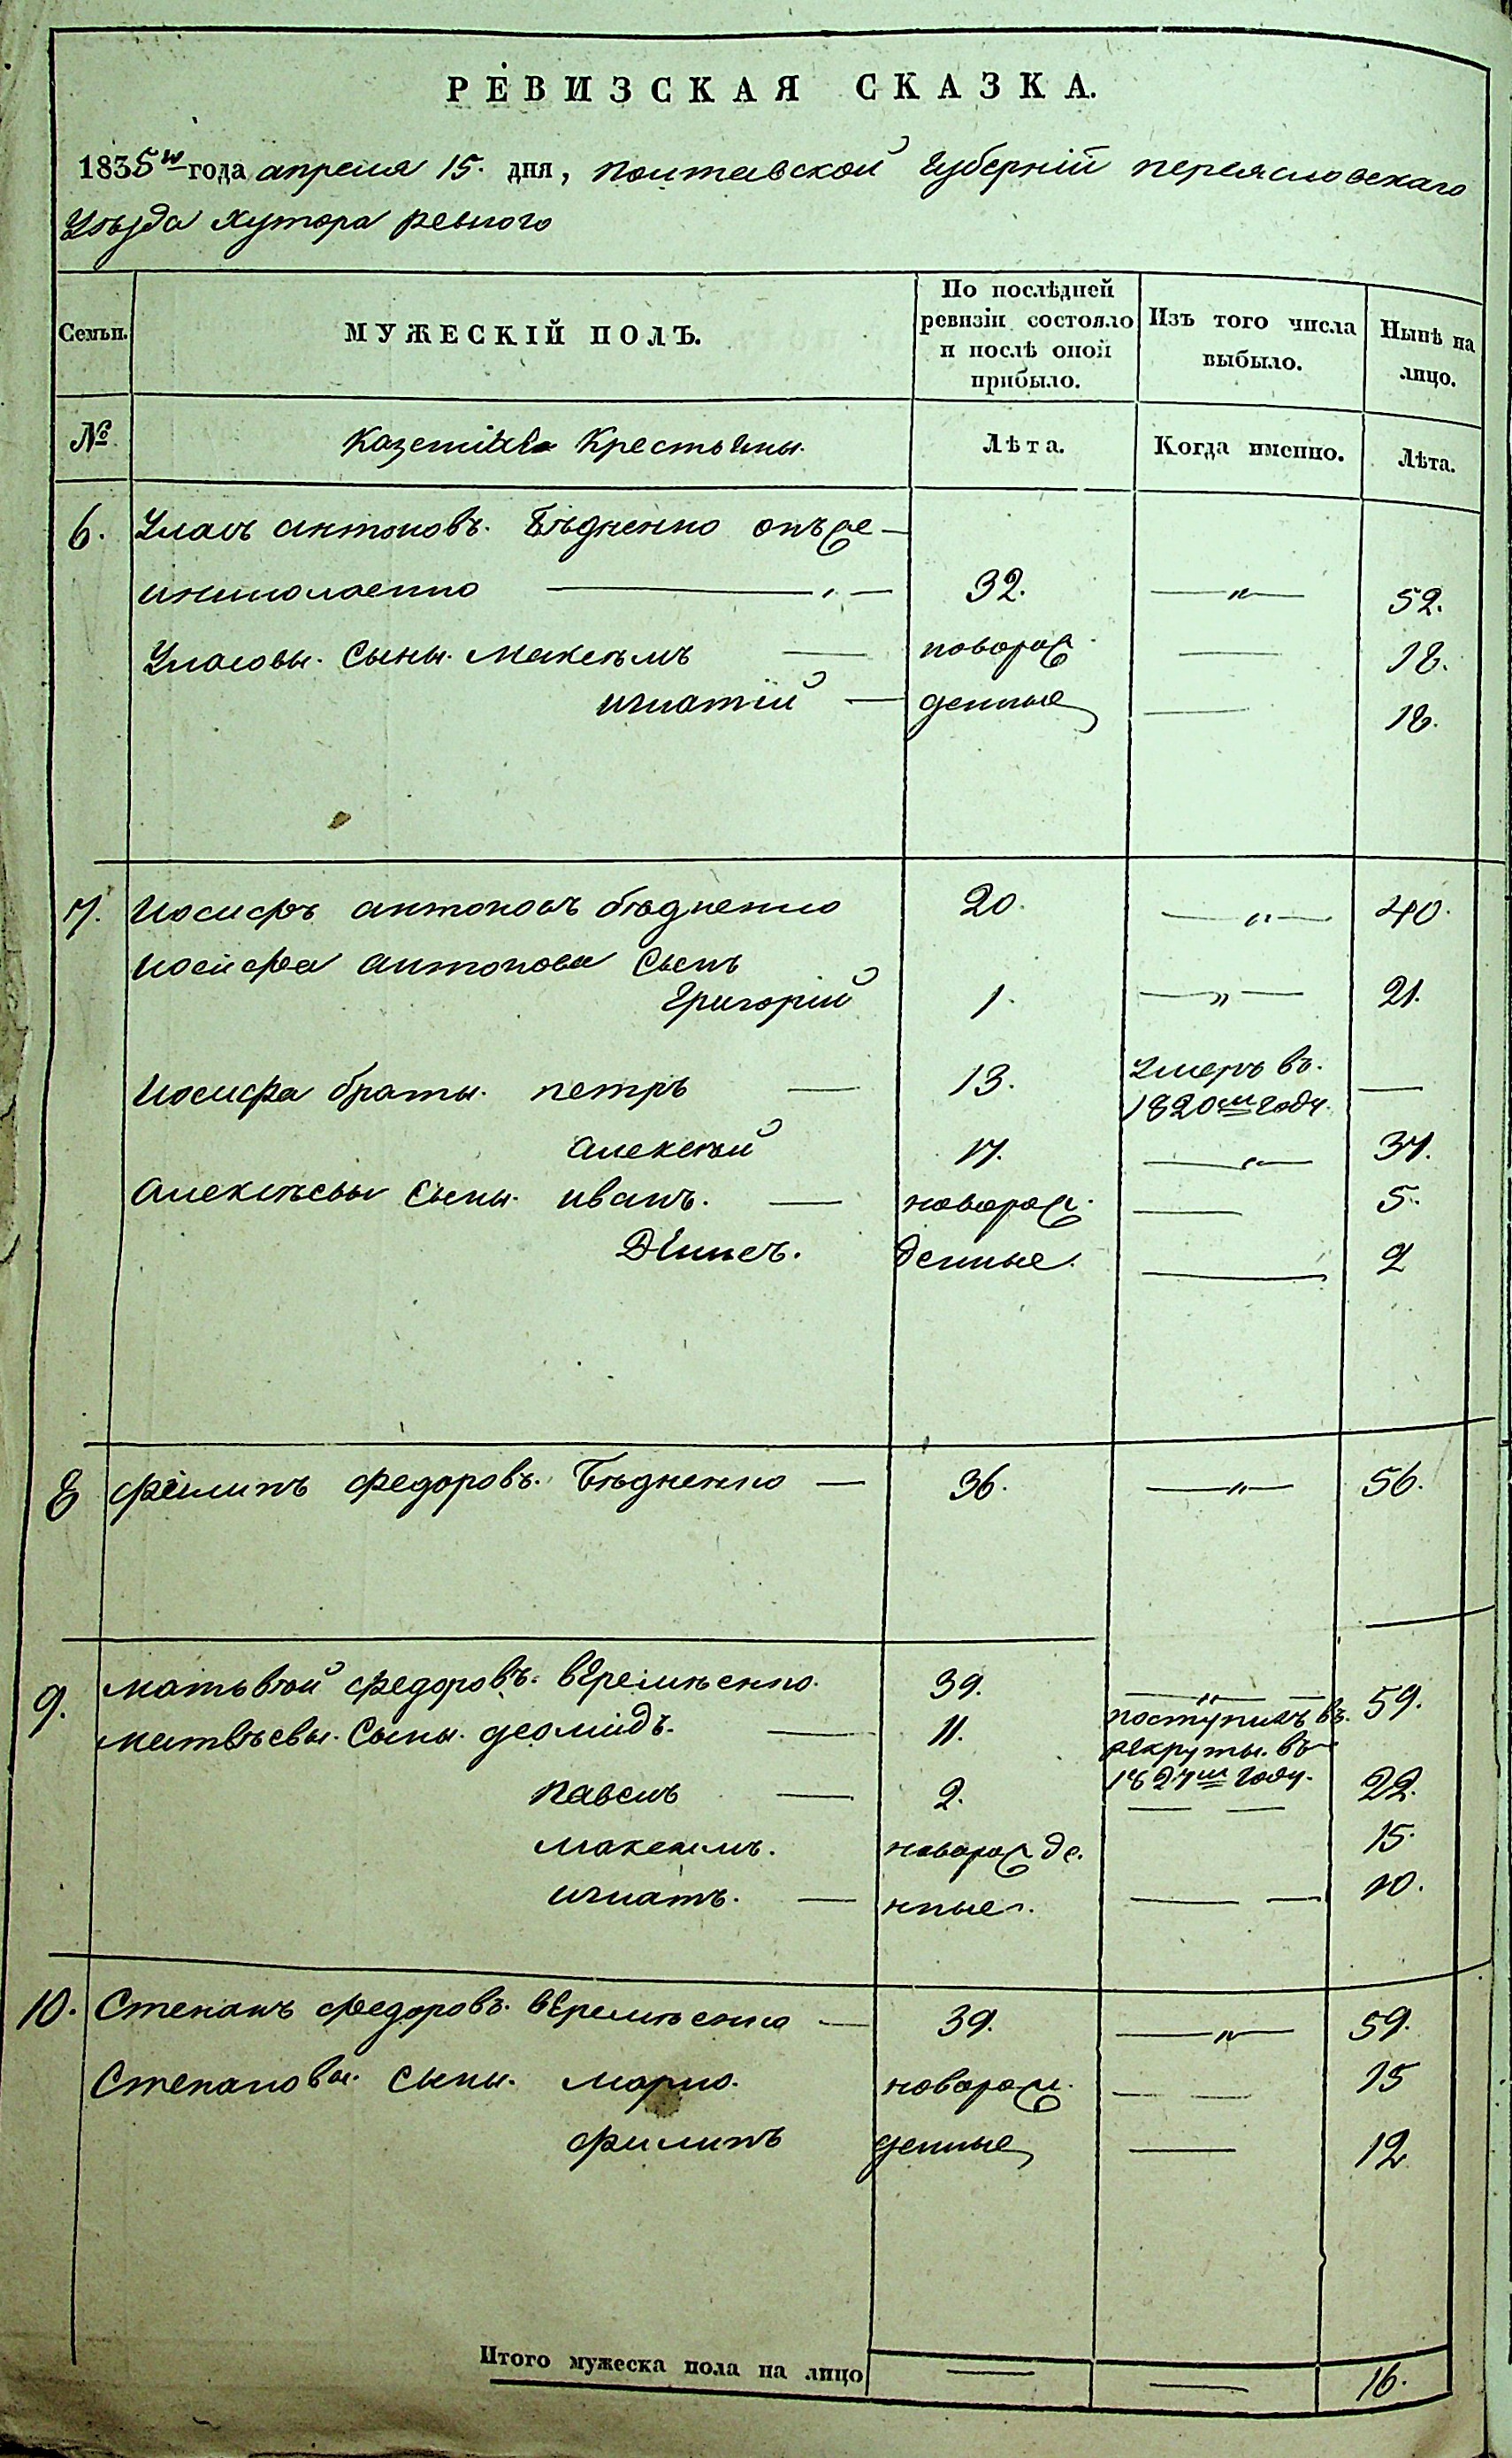 РЕВИЗСКАЯ СКАЗКА.
1835го года апреля 15. дня, полтавской Губерній переясловскаго
Уѣзда Хутора ревного
Семьи. МУЖЕСКІЙ ПОЛЪ. По послѣдней ревизіи состояло и послѣ оной прибыло. Изъ того числа выбыло. Нынѣ на лицо.
№ Крестьяны. Лѣта. Когда именно. Лѣта.
6. Уласъ антоновъ. Бѣдненко онъже
32. — „ — 52.
Уласовы. Сыны. Максѣмъ — поворож — 18.
игнатій — денные — 18.
7. Иосифъ антоновъ бѣдненко 20. — „ — 40.
иосифа антонова Сынъ
Григорій 1. — „ — 21.
Иосифа браты. петръ — 13. Умеръ въ. 1820м году. —
алексѣй 17. — „ — 37.
алексѣевы Сыны. иванъ. — новорож. — 5.
денные. — 2
8 Филипъ Федоровъ. Бѣдненко — 36. — „ — 56.
9. матьвѣй Федоровъ. вЕремѣенко. 39. — „ — 59.
матвѣевы. Сыны. деомидъ. — 11. поступилъ въ. рекруты. въ 1827м году.
павелъ — 2. — — 22.
максимъ. новорож де. 15.
игнатъ. — нные. — — 10.
10. Степанъ Федоровъ. вЕремѣенко — 39. — „ — 59.
Степановы. Сыны. марко. новорож. — — 15
филипъ денные — 12
Итого мужеска пола на лицо — — 16.